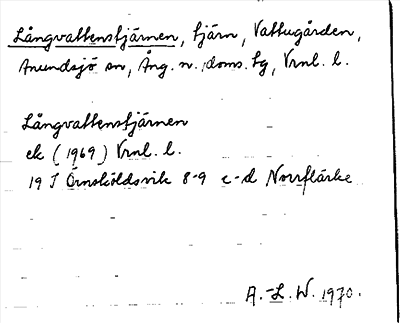 Långvattenstjärnen, tjärn, Vattugården,
Anundsjö sn, Ång. n. doms. tg, Vrnl. l.
Långvattenstjärnen
ek (1969) Vrnl. l.
19 I Örnsköldsvik 8-9 c-d Norrflärke
A.-L. W. 1970.